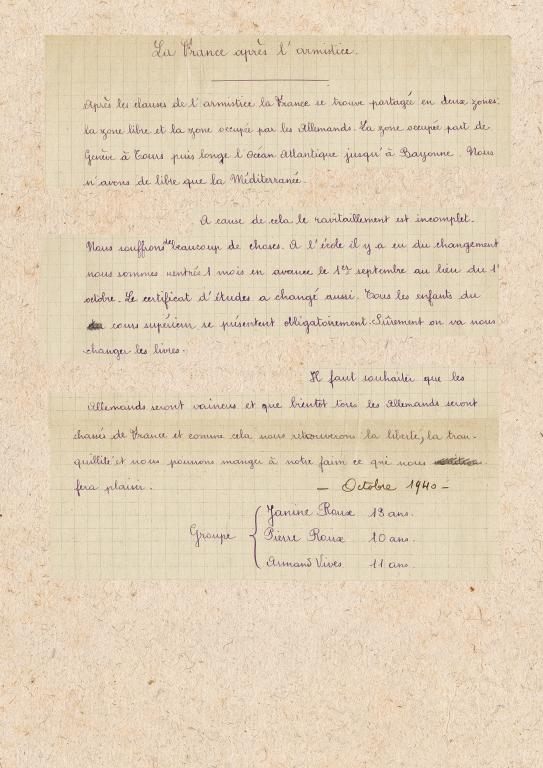 La France après l'armistice.
Après les clauses de l'armistice la France se trouve partagée en deux zones:
la zone libre et la zone occupée par les Allemands. La zone occupée part de
Genève à Tours puis longe l'Océan Atlantique jusqu'à Bayonne. Nous
n'avons de libre que la Méditerranée.
A cause de cela le ravitaillement est incomplet.
Nous souffrons de beaucoup de choses. A l'école il y a eu du changement
nous sommes rentrés 1 mois en avance le 1er septembre au lieu du 1er
octobre. Le certificat d'études a changé aussi. Tous les enfants du
cours supérieur se présentent obligatoirement. Sûrement on va nous
changer les livres.
Il faut souhaiter que les
Allemands seront vaincus et que bientôt tous les Allemands seront
chassés de France et comme cela nous retrouverons la liberté, la tran-
quillité et nous pourrons manger à notre faim ce qui nous
fera plaisir. — Octobre 1940 —
Groupe { Janine Roux 13 ans.
Pierre Roux 10 ans.
Armand Vives 11 ans.